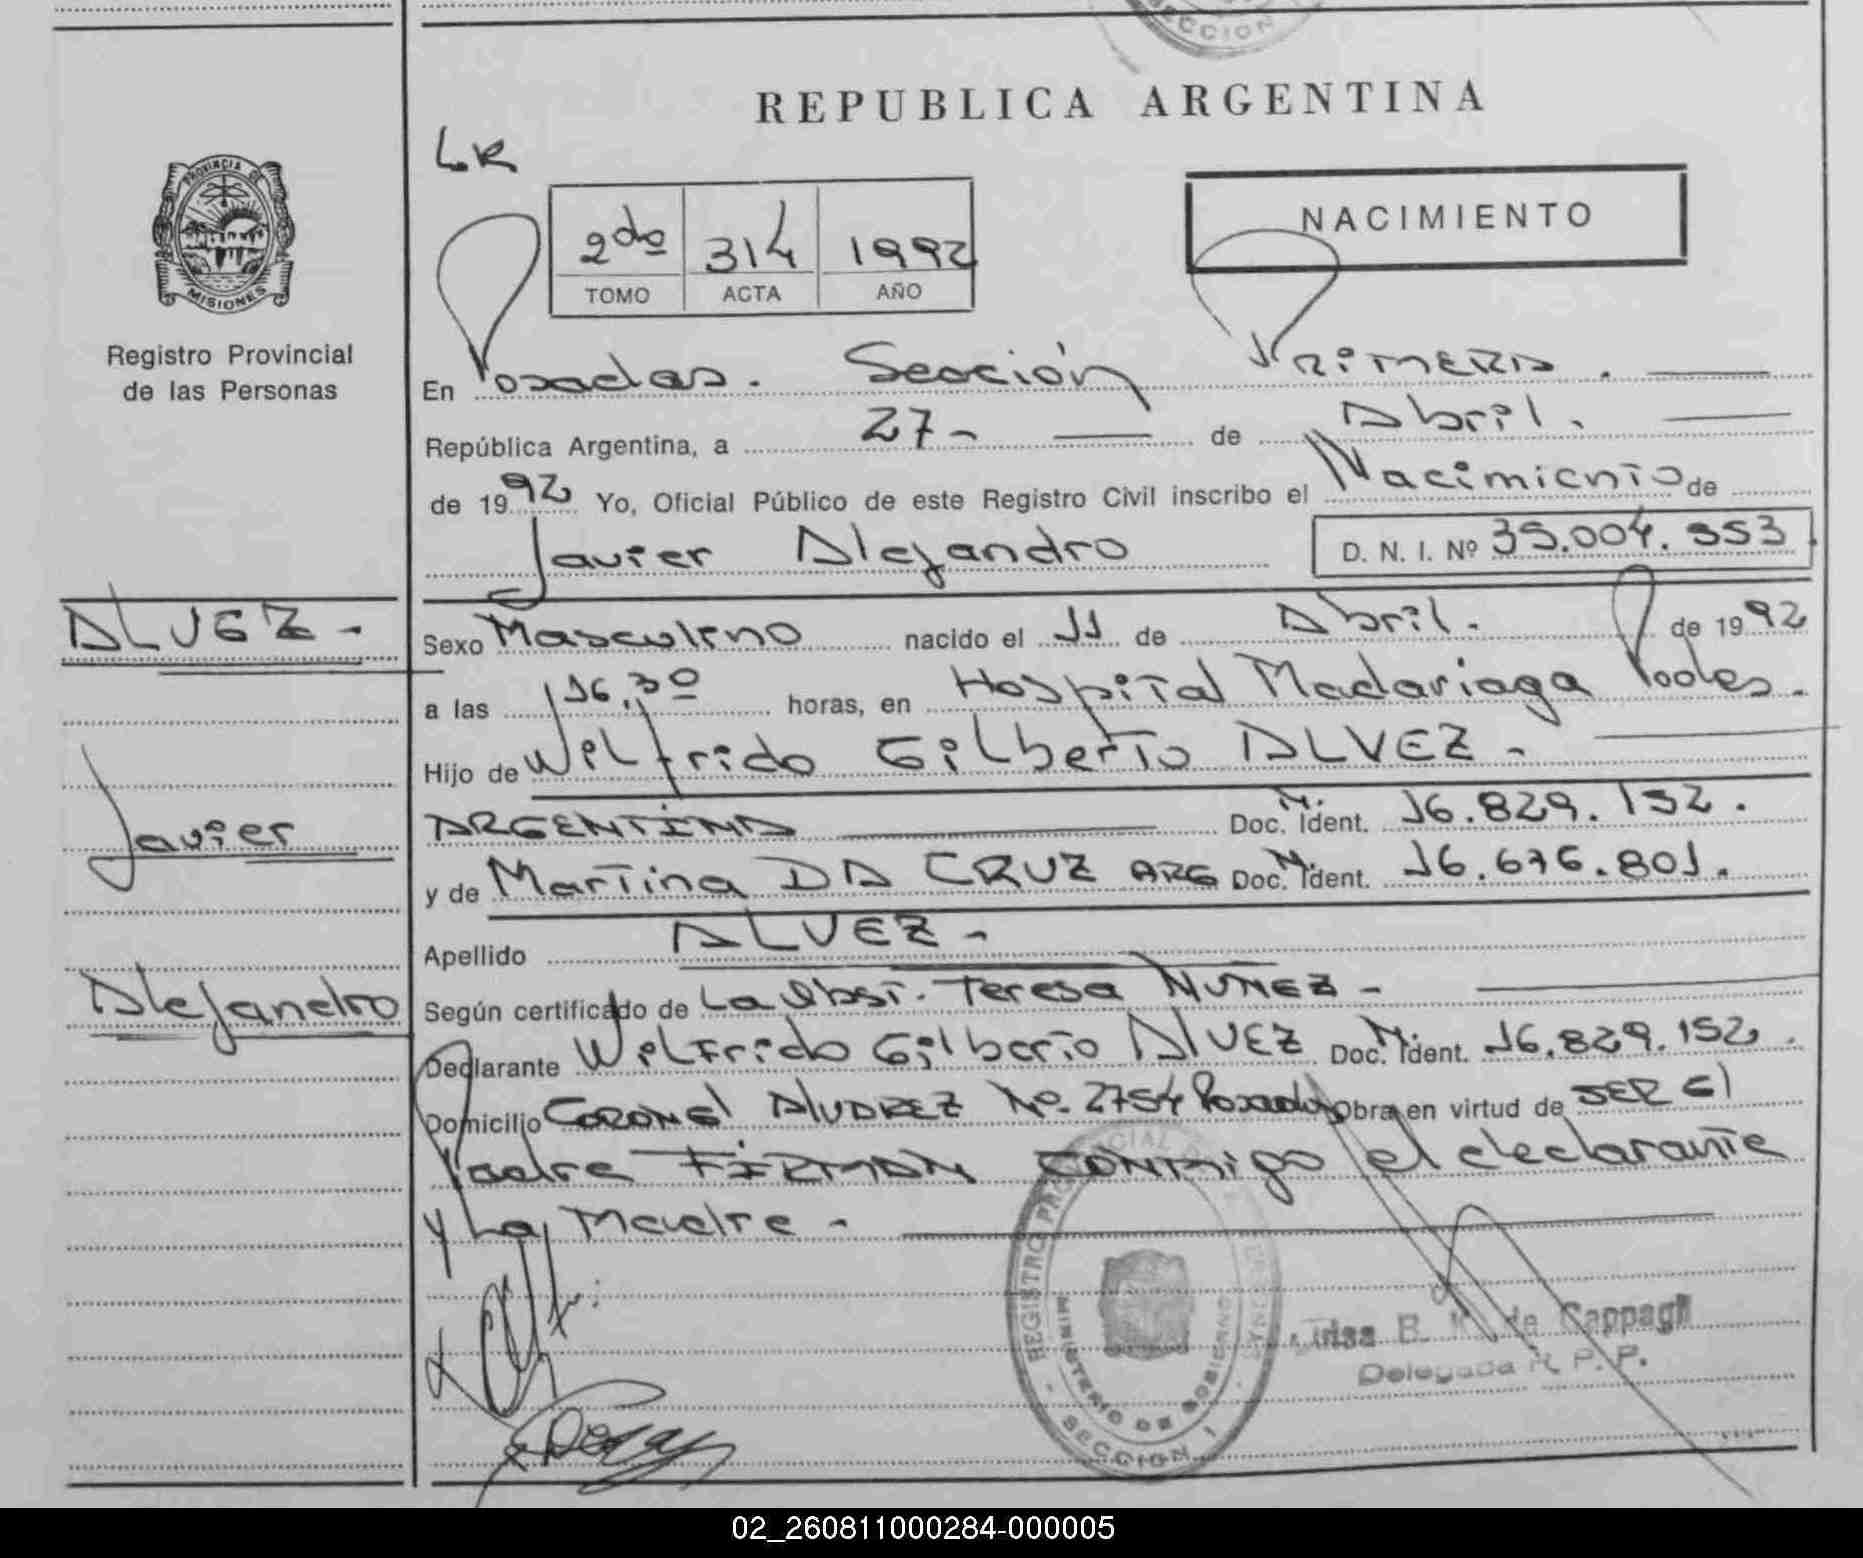 SECCION
REPUBLICA ARGENTINA
LR
PROVINCIA DE
MISIONES
Registro Provincial
de las Personas
NACIMIENTO
2do 314 1992
TOMO ACTA AÑO
En Posadas. Sección Primera.
República Argentina, a 27 - de Abril.
de 1992 Yo, Oficial Público de este Registro Civil inscribo el Nacimiento de
Javier Alejandro D. N. I. Nº 35.004.353
ALVEZ -
Sexo Masculino nacido el 11 de Abril. de 1992
a las 16,30 horas, en Hospital Madariaga Pdas.
Hijo de Wilfrido Gilberto ALVEZ -
Javier
ARGENTINA Doc. M. Ident. 16.829.152.
y de Martina DA CRUZ ARG Doc. M. Ident. 16.676.801.
Apellido ALVEZ -
Alejandro
Según certificado de La Obst. Teresa NUÑEZ -
Declarante Wilfrido Gilberto ALVEZ Doc. M. Ident. 16.829.152.
Domicilio CORONEL ALVAREZ Nº. 2754 Posadas Obra en virtud de SER El
Padre FIRMAN CONMigo el declarante
y La Madre -
REGISTRO PROVINCIAL DE LAS PERSONAS
MINISTERIO DE GOBIERNO
SECCION 1
B. de Cappagli
Delegada R. P. P.
02_260811000284-000005